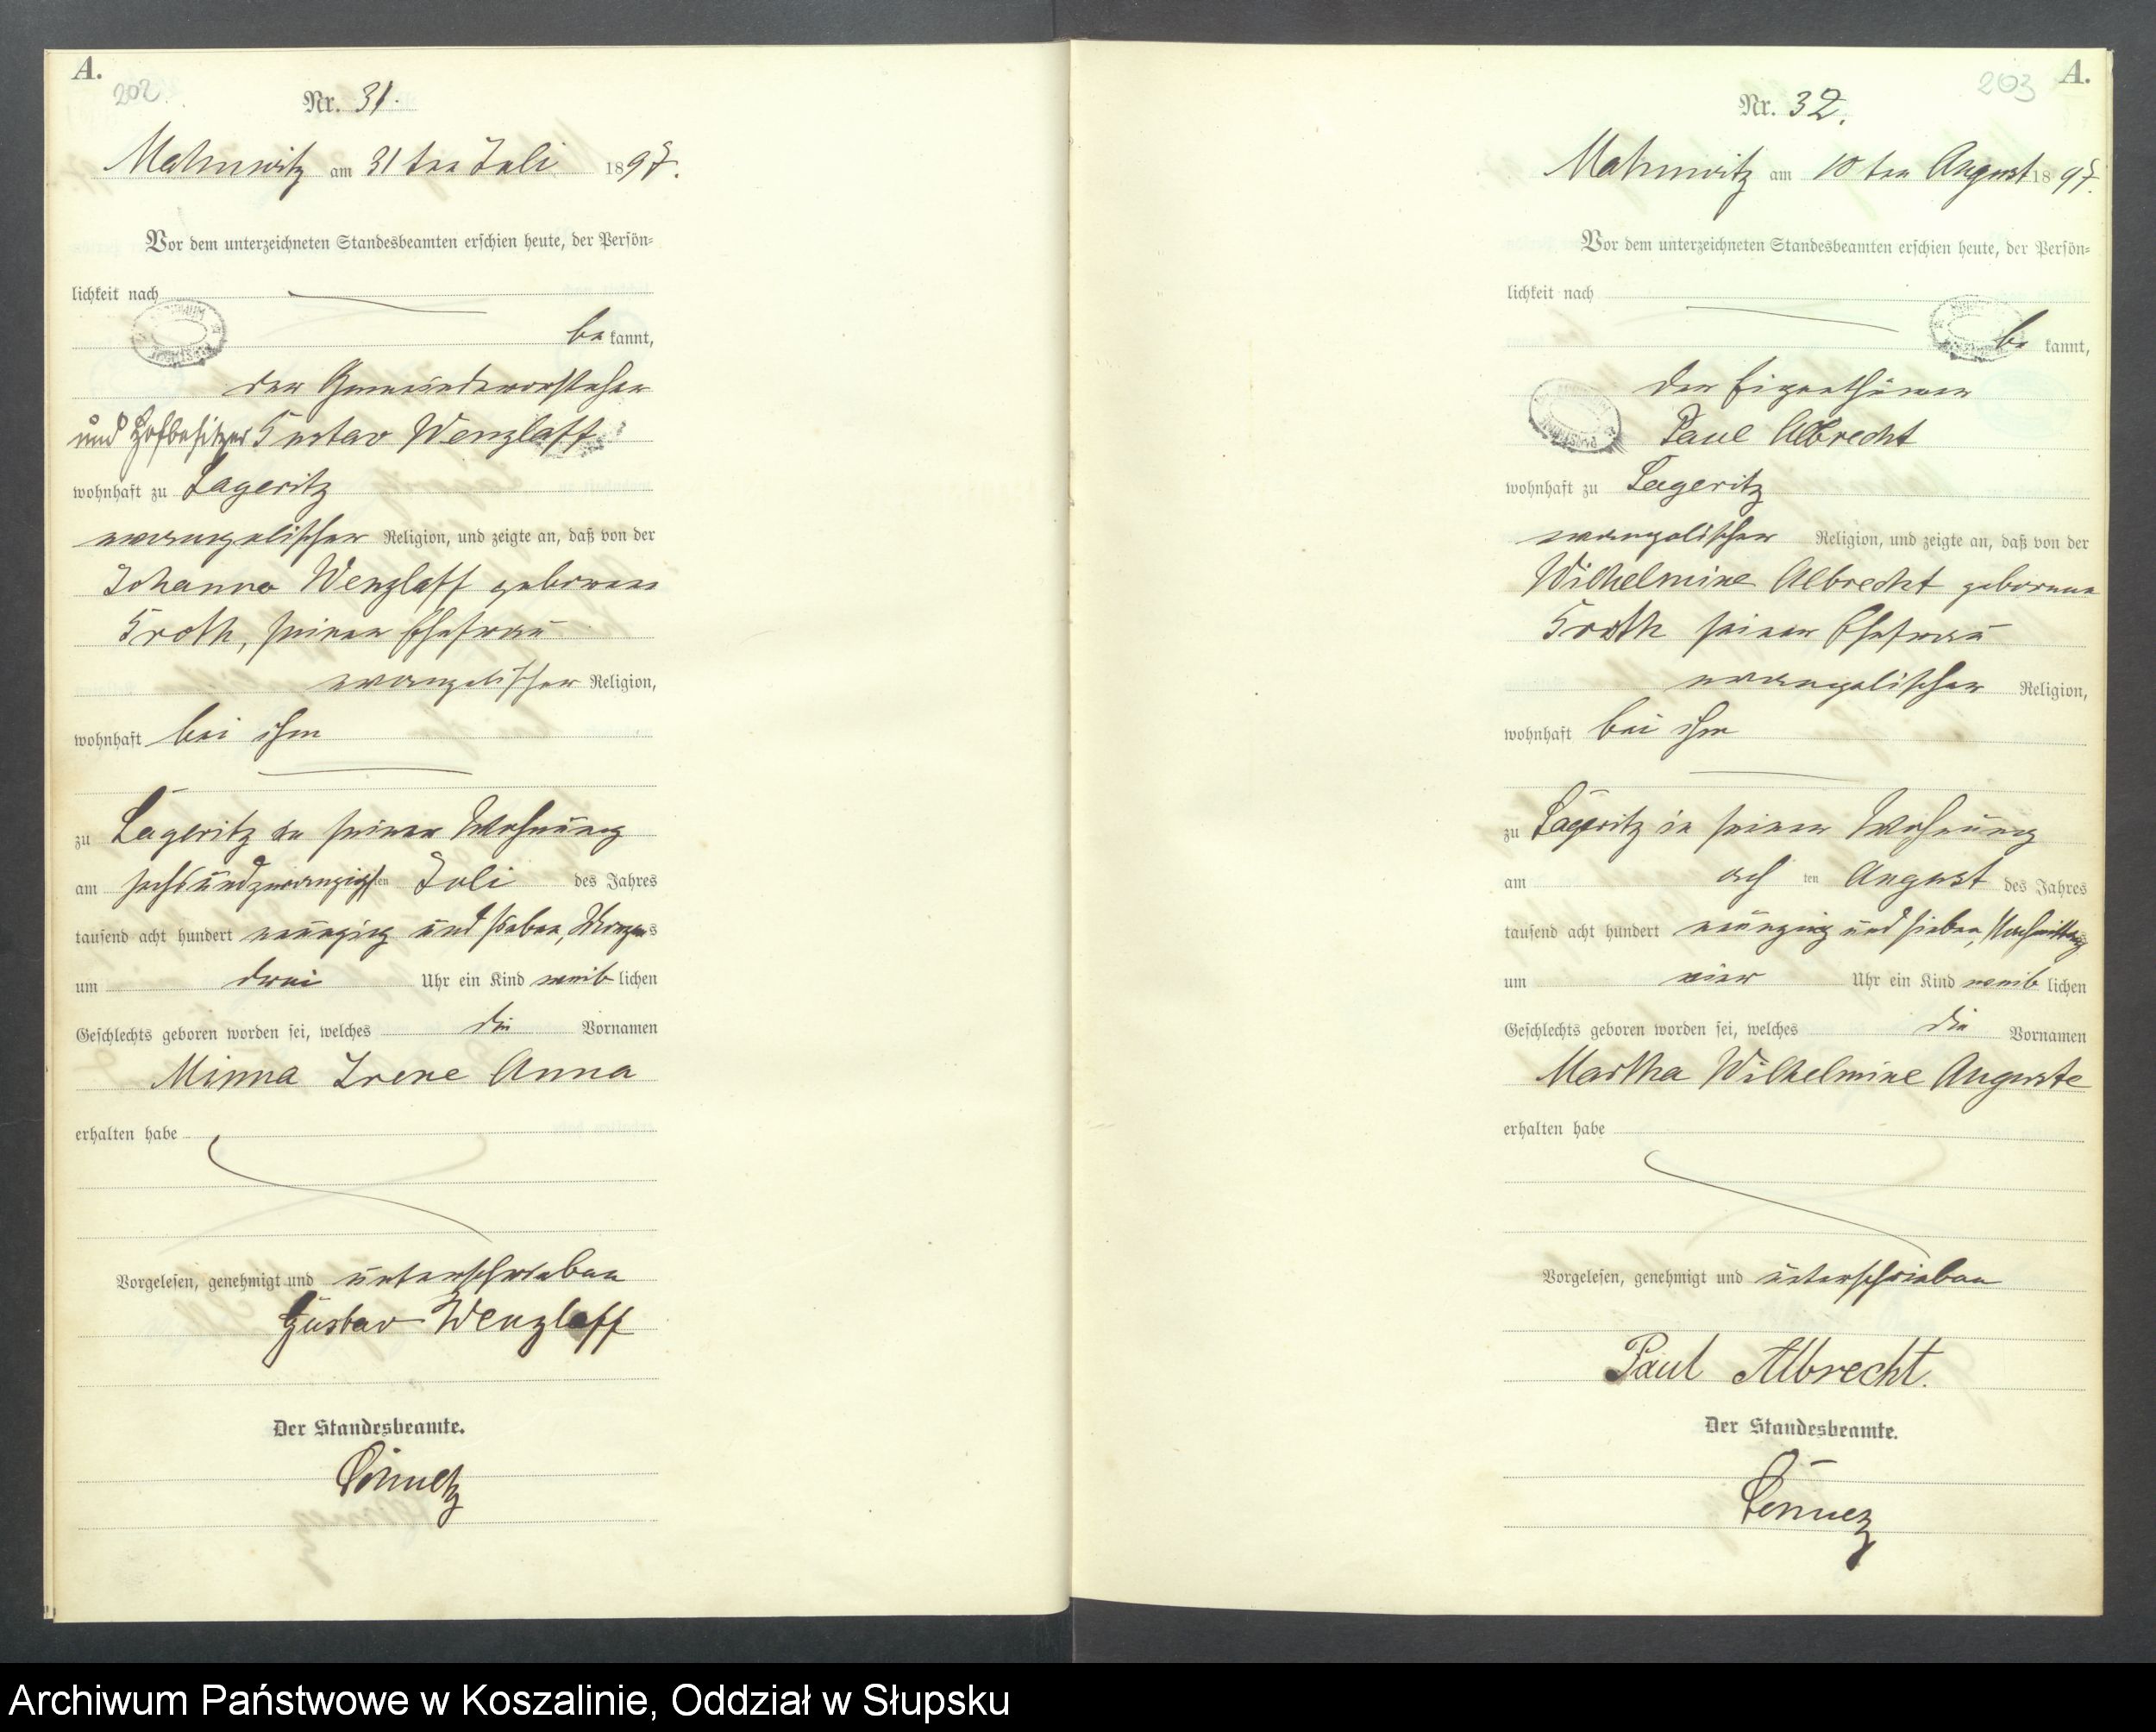 A.
202
Nr. 31.
Mahnwitz am 31ten Juli 1897.
Vor dem unterzeichneten Standesbeamten erschien heute, der Persön-
lichkeit nach
be kannt,
der Gemeindevorsteher
und Hofbesitzer Gustav Wenzlaff
wohnhaft zu Lageritz
evangelischer Religion, und zeigte an, daß von der
Johanna Wenzlaff geborene
Groth, seiner Ehefrau
evangelischer Religion,
wohnhaft bei ihm
zu Lageritz in seiner Wohnung
am sechsundzwanzigsten Juli des Jahres
tausend acht hundert neunzig und sieben, Morgens
um drei Uhr ein Kind weib lichen
Geschlechts geboren worden sei, welches die Vornamen
Minna Irene Anna
erhalten habe
Vorgelesen, genehmigt und unterschrieben
Gustav Wenzlaff
Der Standesbeamte.
A.
203
Nr. 32.
Mahnwitz am 10ten August 1897.
Vor dem unterzeichneten Standesbeamten erschien heute, der Persön-
lichkeit nach
be kannt,
der Eigenthümer
Paul Albrecht
wohnhaft zu Lageritz
evangelischer Religion, und zeigte an, daß von der
Wilhelmine Albrecht geborene
Groth seiner Ehefrau
evangelischer Religion,
wohnhaft bei ihm
zu Lageritz in seiner Wohnung
am ach ten August des Jahres
tausend acht hundert neunzig und sieben, Nachmittags
um vier Uhr ein Kind weib lichen
Geschlechts geboren worden sei, welches die Vornamen
Martha Wilhelmine Auguste
erhalten habe
Vorgelesen, genehmigt und unterschrieben
Paul Albrecht.
Der Standesbeamte.
Archiwum Państwowe w Koszalinie, Oddział w Słupsku